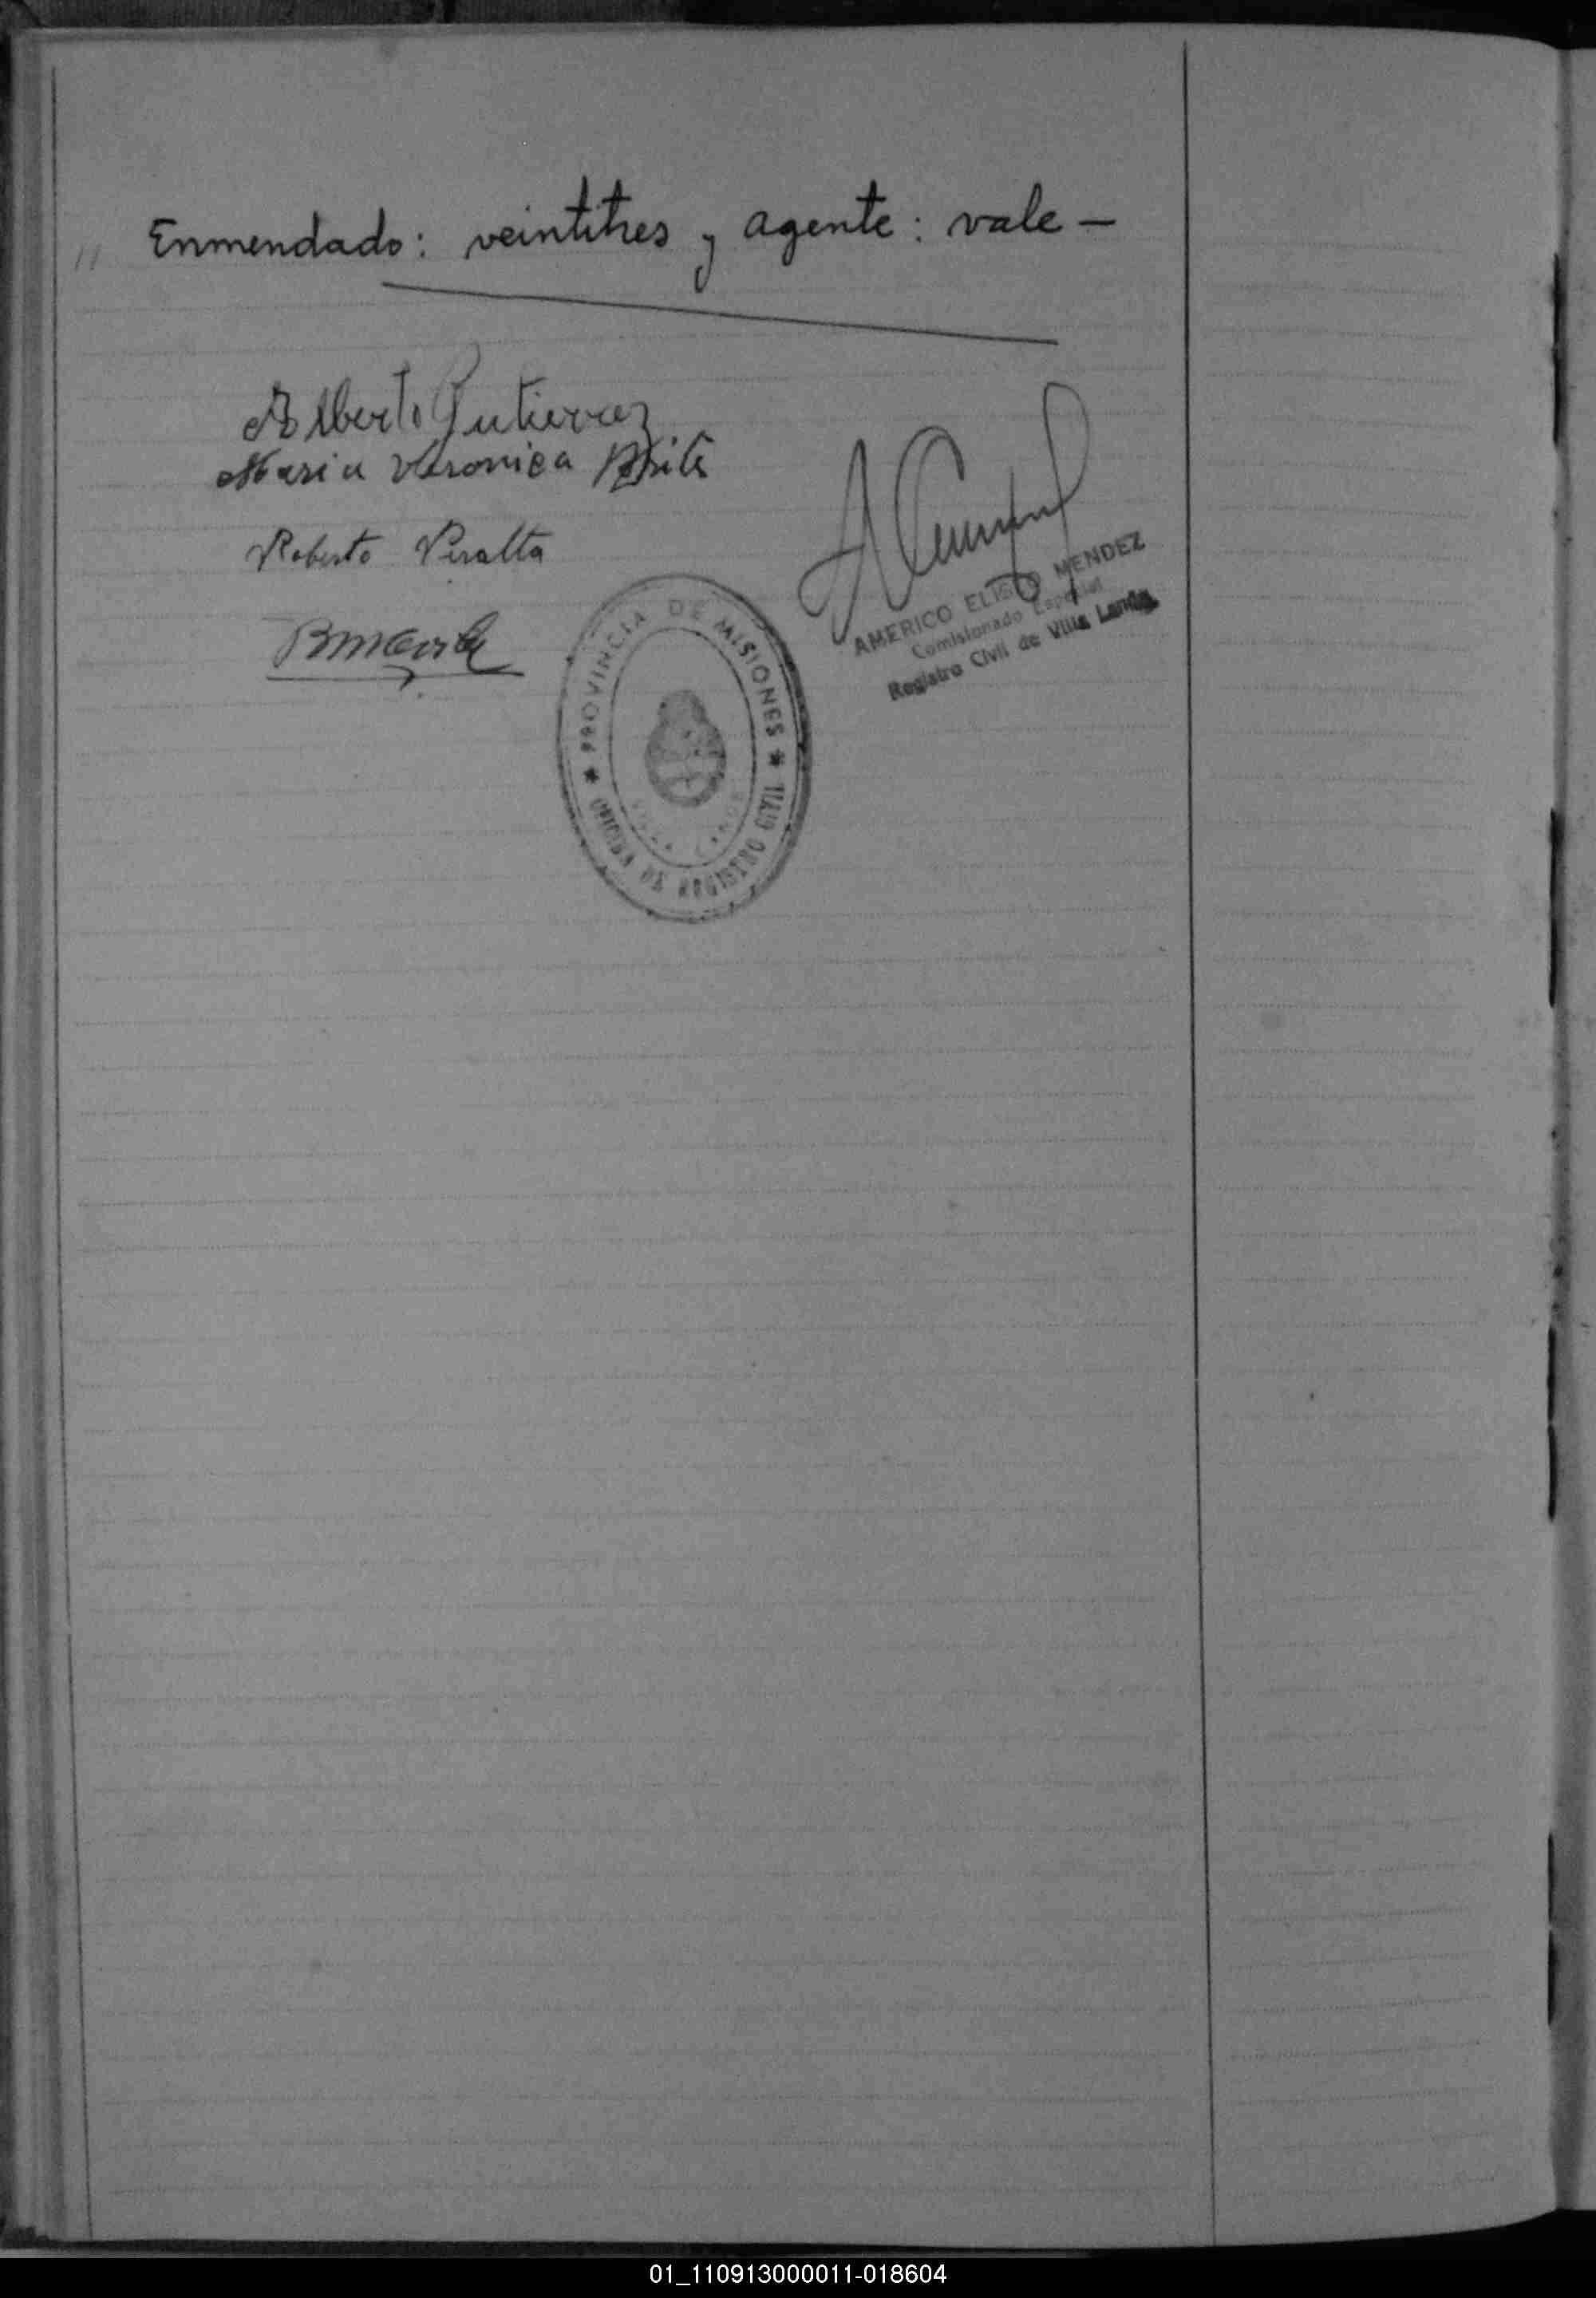 " Enmendado: veintitres y agente: vale —
Alberto Gutierrez
Maria Veronica
Roberto Peralta
PROVINCIA DE MISIONES
OFICINA DE REGISTRO CIVIL
VILLA LANUS
AMERICO ELISEO MENDEZ
Comisionado Especial
Registro Civil de Villa Lanús
01_110913000011-018604